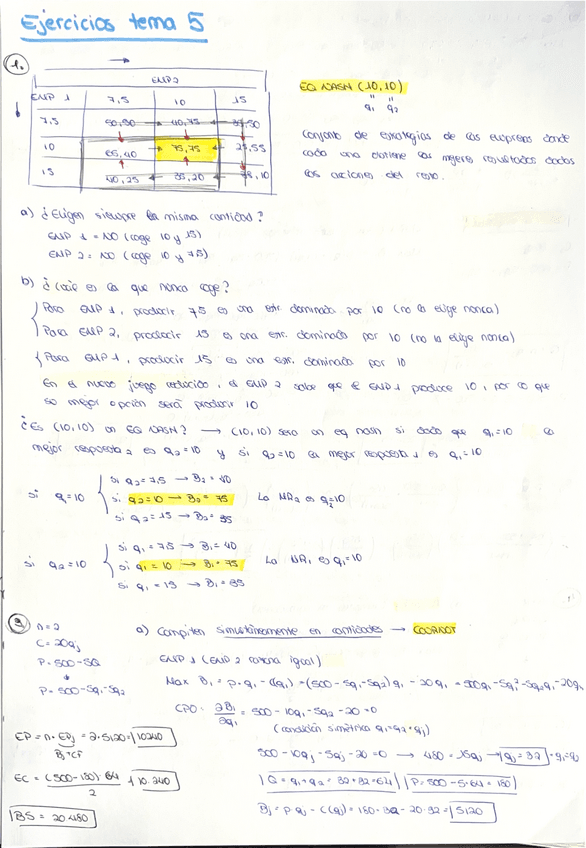 Ejercicios tema 5
1.
EMP 2
EMP 1 7,5 10 15
7,5 50,50 40,75 ,50
10 65,40 75,75 ,55
15 40,25 35,20 ,10
EQ NASH (10,10)
q1 q2
Conjunto de estrategias de las empresas donde
cada una obtiene los mejores resultados dadas
las acciones del resto.
a) ¿Eligen siempre la misma cantidad?
EMP 1 = NO (coge 10 y 15)
EMP 2 = NO (coge 10 y 7,5)
b) ¿Cuál es la que nunca coge?
Para EMP 1, producir 7,5 es una estr. dominada por 10 (no la elige nunca)
Para EMP 2, producir 15 es una estr. dominada por 10 (no la elige nunca)
Para EMP 1, producir 15 es una estr. dominada por 10
En el nuevo juego reducido, la EMP 2 sabe que la EMP 1 produce 10, por lo que
su mejor opción será producir 10
¿Es (10,10) un EQ NASH? → (10,10) será un eq nash si dado que q1=10 la
mejor respuesta2 es q2=10 y si q2=10 la mejor respuesta1 es q1=10
si q1=10
si q2=7,5 → B2=40
si q2=10 → B2=75
si q2=15 → B2=55
La MR2 es q2=10
si q2=10
si q1=7,5 → B1=40
si q1=10 → B1=75
si q1=15 → B1=35
La MR1 es q1=10
n=2
C=20qj
P=500-5Q
P=500-5q1-5q2
a) Compiten simultáneamente en cantidades → COURNOT
EMP 1 (EMP 2 razona igual)
Max B1 = P·q1 - C(q1) = (500-5q1-5q2)q1 - 20q1 = 500q1-5q1²-5q2q1-20q1
CPO: ∂B1/∂q1 = 500-10q1-5q2-20=0
(condición simétrica q1=q2=qj)
500-10qj-5qj-20=0 → 480=15qj → qj=32 = q1=q2
Q=q1+q2=32+32=64 P=500-5·64=180
Bj=P·qj-C(qj)=180·32-20·32=5120
EP=n·EPj=2·5120=10240
Bj+CF
EC=(500-180)·64/2=10.240
BS=20.480